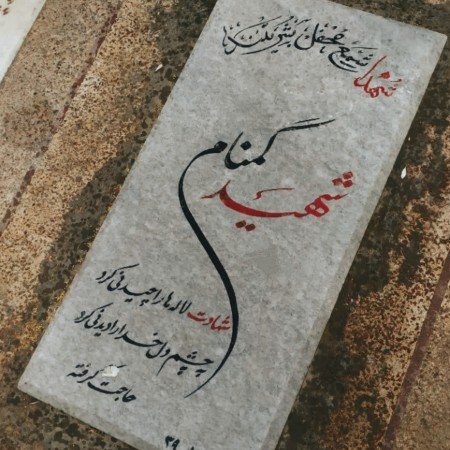 شهدا شمع محفل بشریتند
شهید گمنام
شهادت لاله ها را چیدنی کرد
چشم دل خدا را دیدنی کرد
حاجت گرفته
۳۹